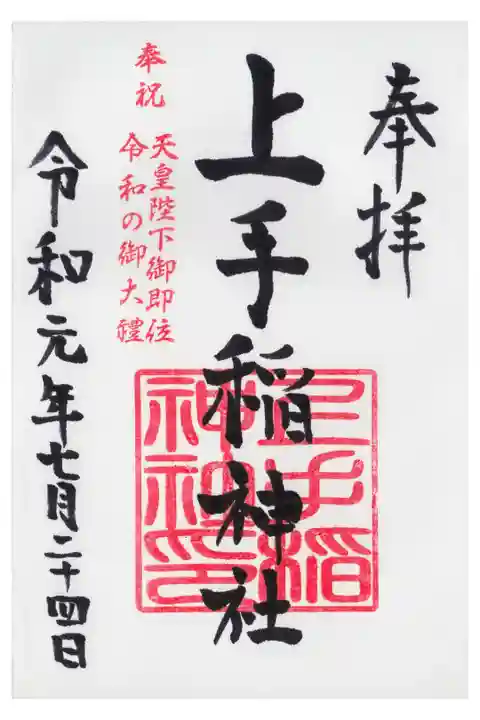 奉拝
上手稲神社
上手稲
神社印
奉祝
天皇陛下御即位
令和の御大禮
令和元年七月二十四日